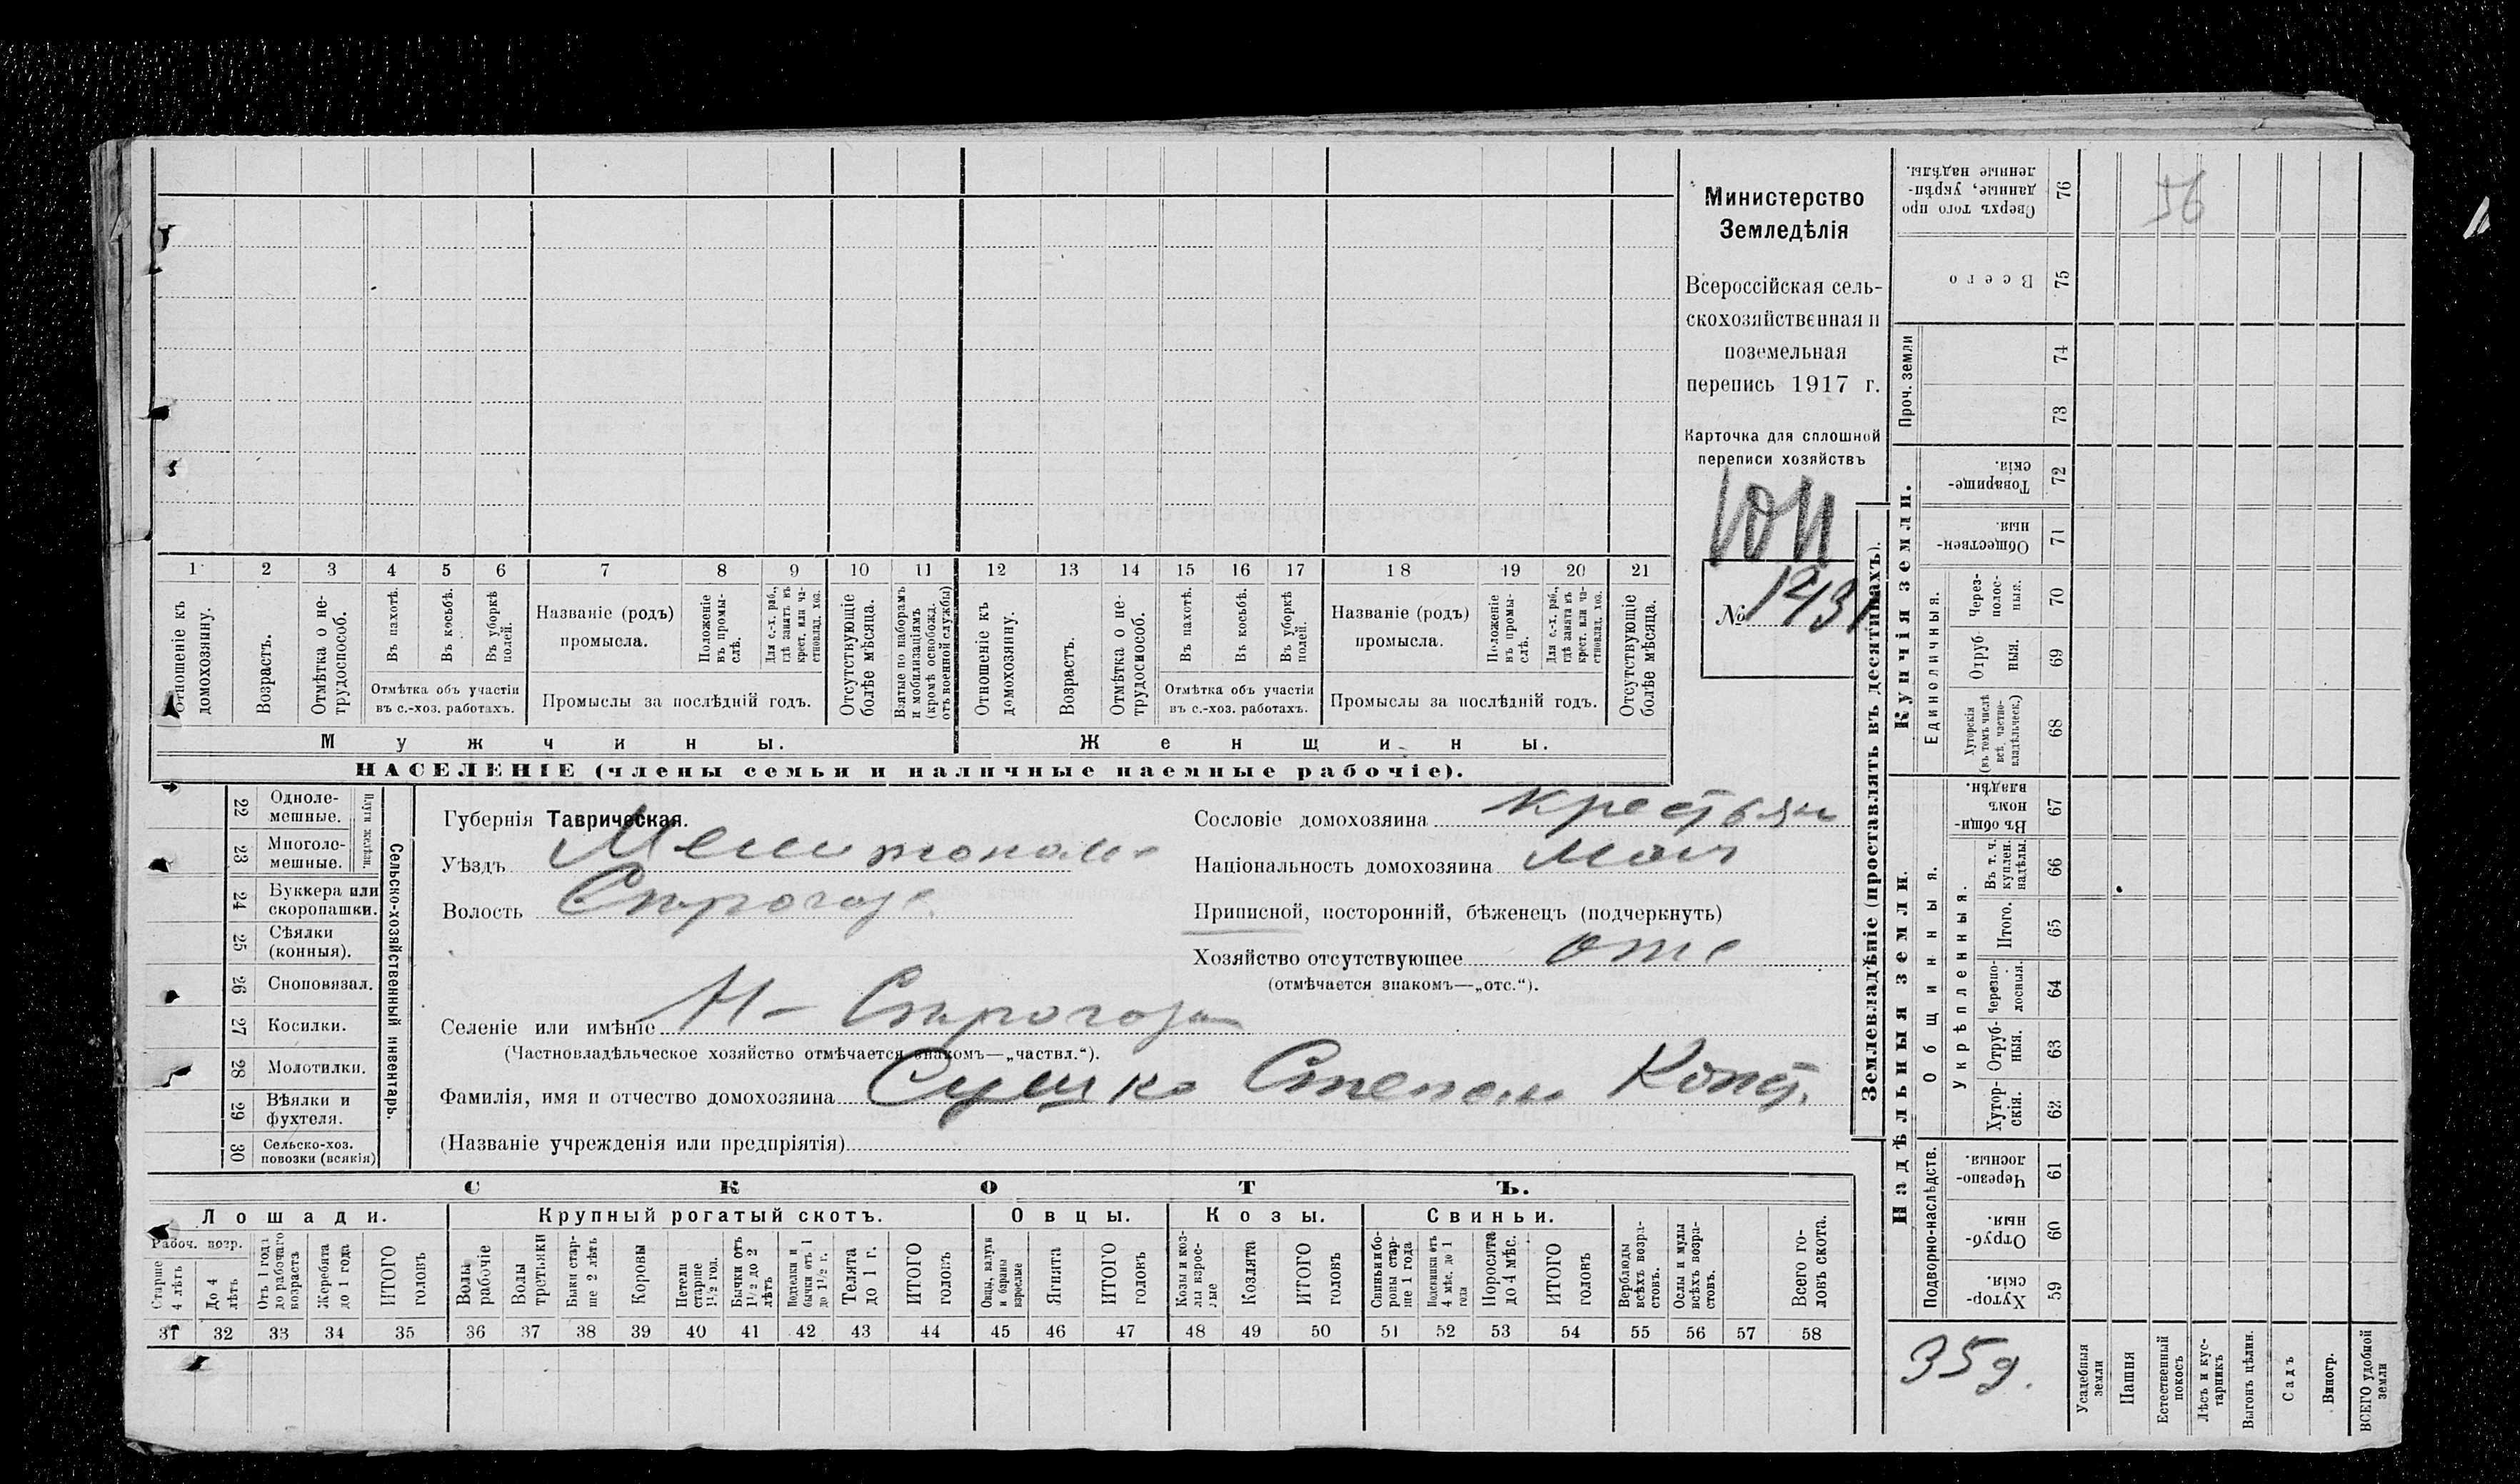 1 2 3 4 5 6 7 8 9 10 11 12 13 14 15 16 17 18 19 20 21
Отношеніе къ домохозяину.
Возрастъ.
Отмѣтка о не-
трудоспособ.
Въ пахотѣ.
Въ косьбѣ.
Въ уборкѣ
полей.
Отмѣтка объ участіи
въ с.-хоз. работахъ.
Названіе (родъ)
промысла.
Положеніе
въ промы-
слѣ.
Для с.-х. раб.,
гдѣ занятъ въ
крест. или ча-
стновлад. хоз.
Промыслы за послѣдній годъ.
Отсутствующіе
болѣе мѣсяца.
Взятые по наборамъ
и мобилизаціямъ
(кромѣ освобожд.
отъ военной службы)
Отношеніе къ
домохозяину.
Возрастъ.
Отмѣтка о не-
трудоспособ.
Въ пахотѣ.
Въ косьбѣ.
Въ уборкѣ
полей.
Отмѣтка объ участіи
въ с.-хоз. работахъ.
Названіе (родъ)
промысла.
Положеніе
въ промы-
слѣ.
Для с.-х. раб.,
гдѣ занята въ
крест. или ча-
стновлад. хоз.
Промыслы за послѣдній годъ.
Отсутствующіе
болѣе мѣсяца.
Мужчины.
Женщины.
НАСЕЛЕНІЕ (члены семьи и наличные наемные рабочіе).
Министерство
Земледѣлія
Всероссійская сель-
скохозяйственная и
поземельная
перепись 1917 г.
Карточка для сплошной
переписи хозяйствъ
№ 1431
22 Одноле-
мешные.
23 Многоле-
мешные.
Плуги желѣзн.
24 Буккера или
скоропашки.
25 Сѣялки
(конныя).
26 Сноповязал.
27 Косилки.
28 Молотилки.
29 Вѣялки и
фухтеля.
30 Сельско-хоз.
повозки (всякія)
Сельско-хозяйственный инвентарь.
Губернія Таврическая.
Уѣздъ
Волость
Селеніе или имѣніе
(Частновладѣльческое хозяйство отмѣчается знакомъ—„частвл.“).
Фамилія, имя и отчество домохозяина Сушко Степан Конст.
(Названіе учрежденія или предпріятія)
Сословіе домохозяина крестьян
Національность домохозяина
Приписной, посторонній, бѣженецъ (подчеркнуть)
Хозяйство отсутствующее отс
(отмѣчается знакомъ—„отс.“).
СКОТЪ.
Лошади. Крупный рогатый скотъ. Овцы. Козы. Свиньи.
Рабоч. возр.
Старше
4 лѣтъ
До 4
лѣтъ
Отъ 1 года
до рабочаго
возраста
Жеребята
до 1 года
ИТОГО
головъ
Волы
рабочіе
Волы
третьяки
Быки стар-
ше 2 лѣтъ
Коровы
Нетели
старше
1½ год.
Бычки отъ
1½ до 2
лѣтъ
Подтелки и
бычки отъ 1
до 1½ г.
Телята
до 1 г.
ИТОГО
головъ
Овцы, валухи
и бараны
взрослые
Ягнята
ИТОГО
головъ
Козы и коз-
лы взрос-
лые
Козлята
ИТОГО
головъ
Свиньи и бо-
ровы стар-
ше 1 года
Подсвинки отъ
4 мѣс. до 1
года
Поросята
до 4 мѣс.
ИТОГО
головъ
Верблюды
всѣхъ возра-
стовъ.
Ослы и мулы
всѣхъ возра-
стовъ.
Всего го-
ловъ скота.
31 32 33 34 35 36 37 38 39 40 41 42 43 44 45 46 47 48 49 50 51 52 53 54 55 56 57 58
Землевладѣніе (проставлять въ десятинахъ).
Купчія земли.
Надѣльныя земли.
Проч. земли
Единоличныя.
Общинныя.
Укрѣпленныя.
Подворно-наслѣдств.
Сверхъ того про
данные, укрѣп-
ленные надѣлы.
76
56
Всего
75
74
73
Товарище-
скія.
72
Обществен-
ныя.
71
Через-
полос-
ныя.
70
Отруб-
ныя.
69
Хуторскія
(въ томъ числѣ
всѣ частно-
владѣльческ.)
68
Въ общин-
номъ
владѣн.
67
Въ т. ч.
куплен.
надѣлы.
66
Итого.
65
черезпо-
лосныя.
64
Отруб-
ныя.
63
Хутор-
скія.
62
Черезпо-
лосныя.
61
Отруб-
ныя.
60
Хутор-
скія.
59
35 д.
Усадебныя
земли
Пашня
Естественный
покосъ
Лѣсъ и кус-
тарникъ
Выгонъ цѣлин.
Садъ
Виногр.
ВСЕГО удобной
земли